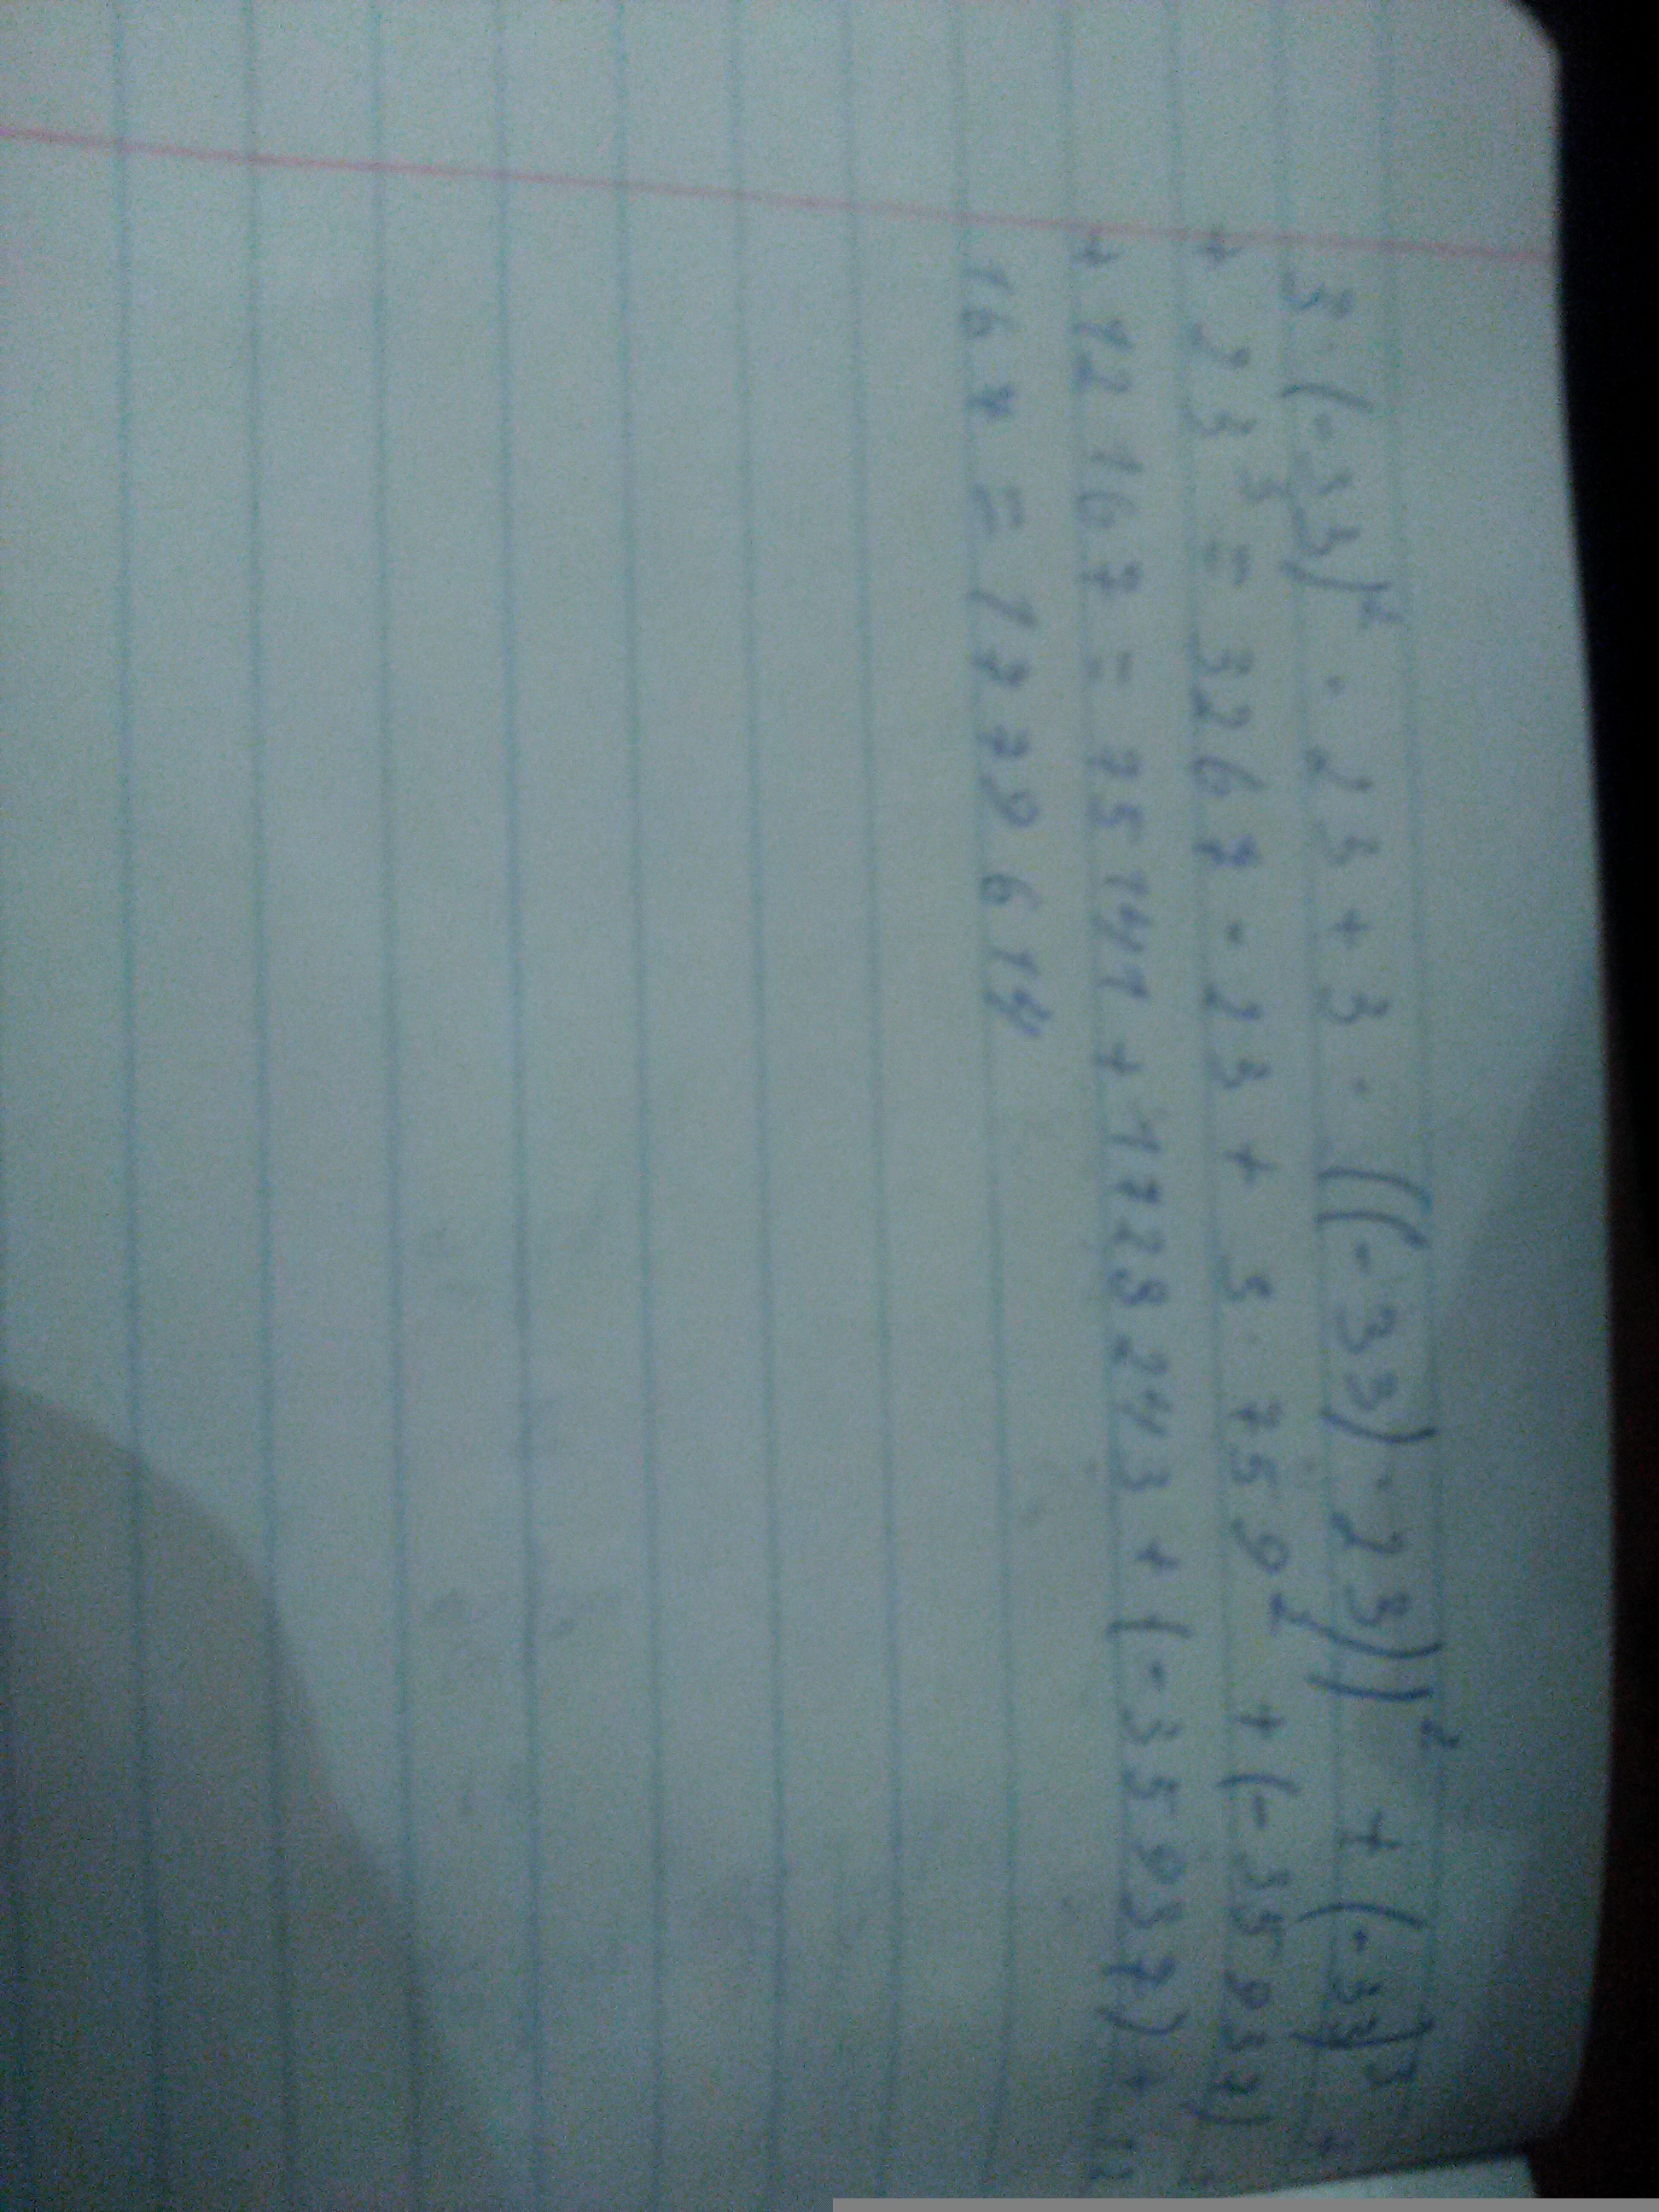 3·(-33)² · 23 + 3 · ((-33)·23))² + (-33)³ +
+ 23³ = 3267 · 23 + 3·759² + (-35937)
+ 12167 = 75141 + 1728243 + (-35937) + 12
167 = 1779614